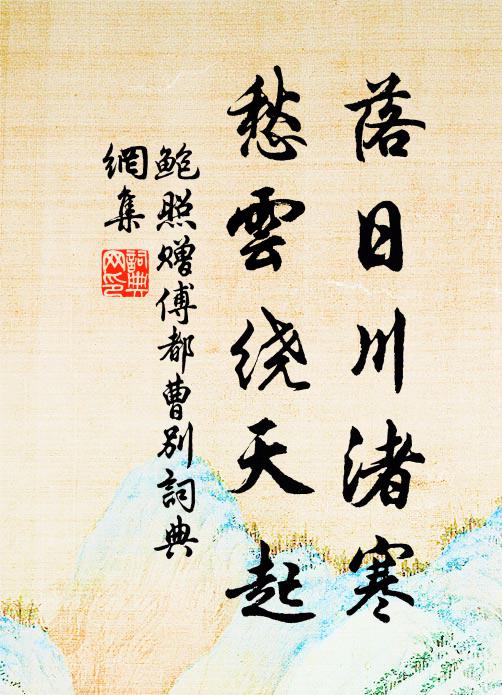 落日川渚寒
愁雲绕天起
鮑照赠傅都曹别詞典
網集
詞典
网印